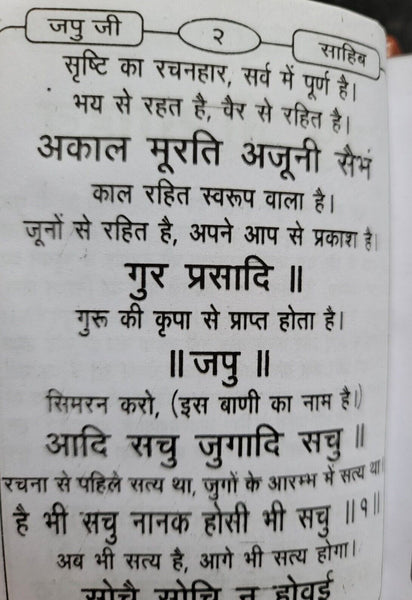 जपु जी २ साहिब
सृष्टि का रचनहार, सर्व में पूर्ण है।
भय से रहत है, वैर से रहित है।
अकाल मूरति अजूनी सैभं
काल रहित स्वरूप वाला है।
जूनों से रहित है, अपने आप से प्रकाश है।
गुर प्रसादि ॥
गुरू की कृपा से प्राप्त होता है।
॥ जपु ॥
सिमरन करो, (इस बाणी का नाम है।)
आदि सचु जुगादि सचु ॥
रचना से पहिले सत्य था, जुगों के आरम्भ में सत्य था।
है भी सचु नानक होसी भी सचु ॥१॥
अब भी सत्य है, आगे भी सत्य होगा।
सोचै सोचि न होवई